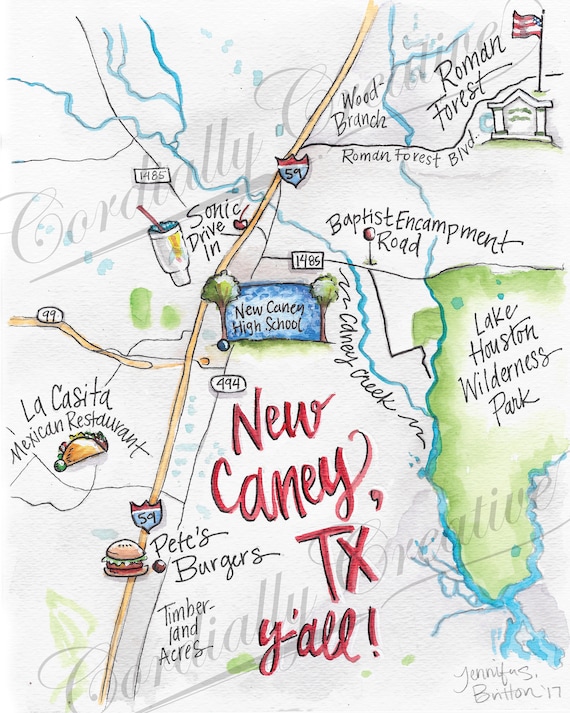 Roman
Forest
Wood-
Branch
Roman Forest Blvd.
59
1485
Sonic
Drive
In
Baptist Encampment
Road
1485
New Caney
High School
Caney Creek
Lake
Houston
Wilderness
Park
99
494
La Casita
Mexican Restaurant
New
Caney,
TX
y'all!
59
Pete's
Burgers
Timber-
land
Acres
Jennifer S.
Britton '17
Cordially Creative
Cordially Creative
Cordially Creative